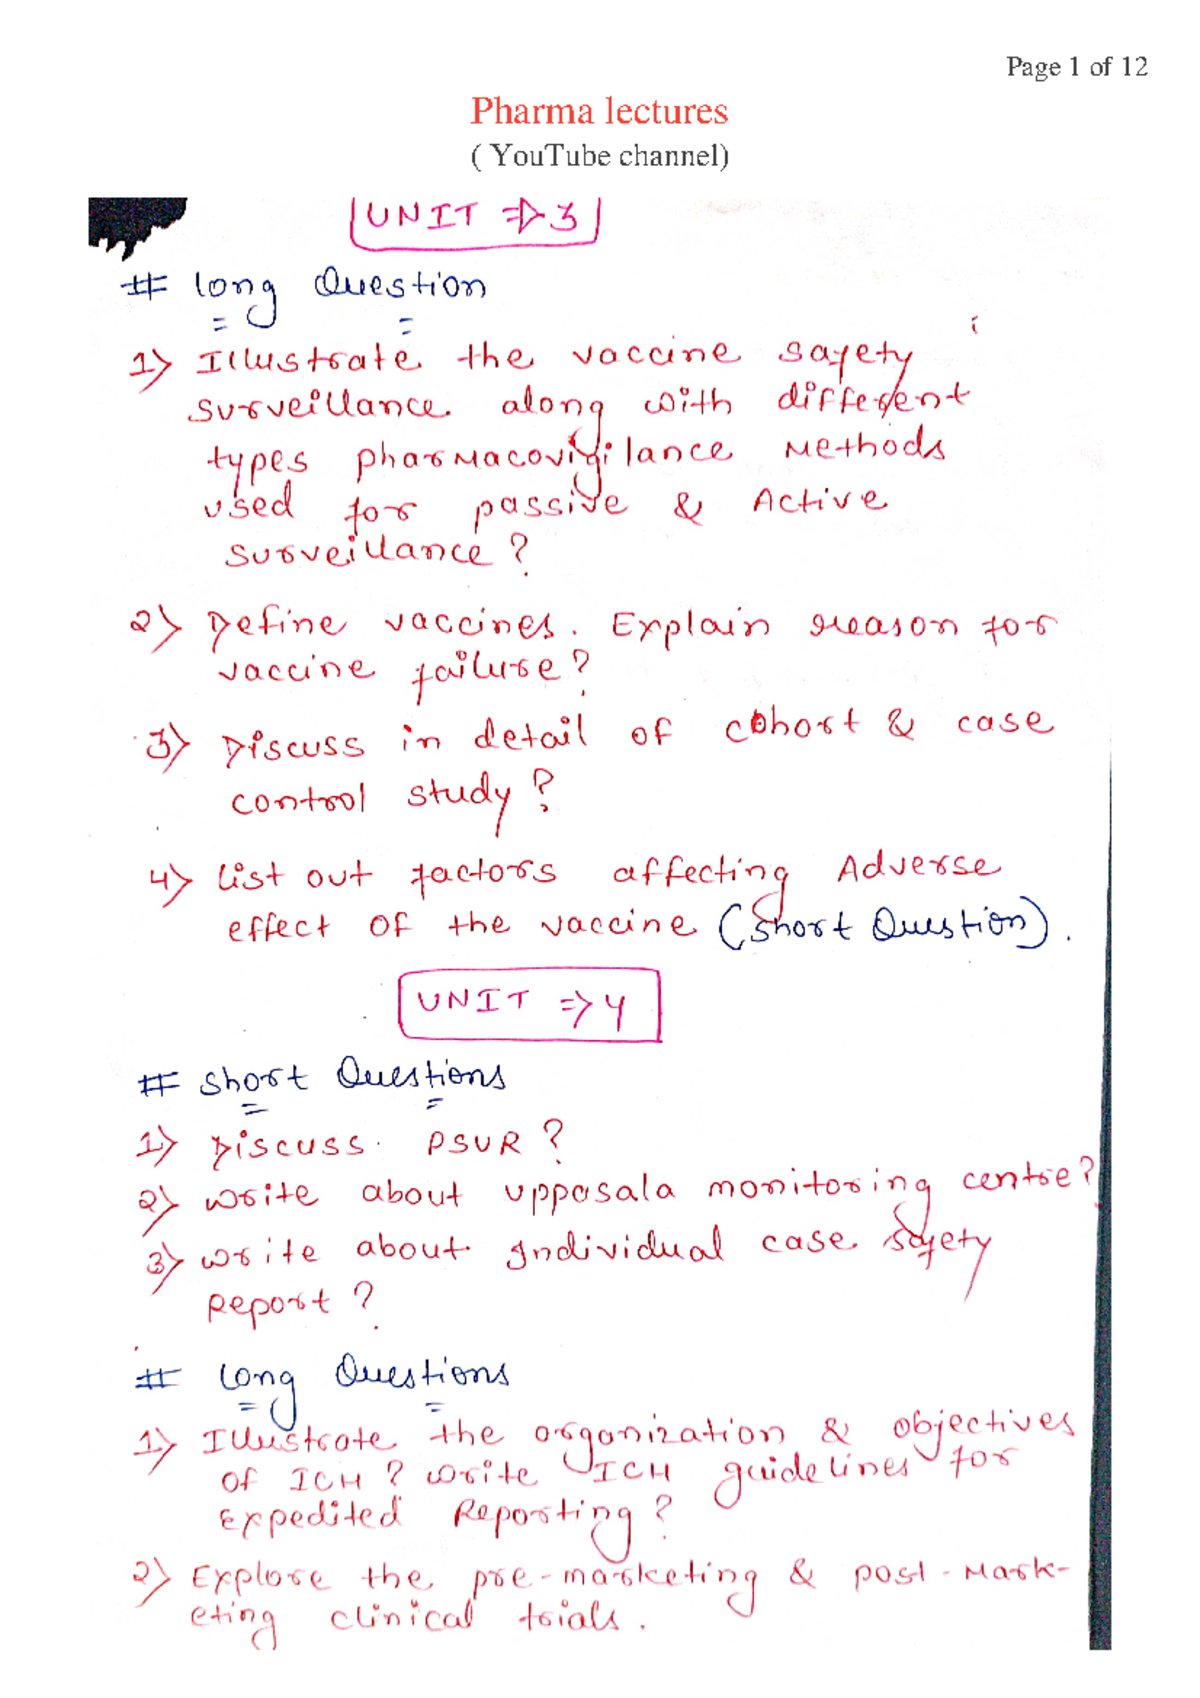 Page 1 of 12
Pharma lectures
( YouTube channel)
UNIT => 3
# Long Question
1) Illustrate the vaccine safety
surveillance along with different
types pharmacovigilance Methods
used for passive & Active
surveillance?
2) Define vaccines. Explain reason for
vaccine failure?
3) Discuss in detail of cohort & case
control study?
4) List out factors affecting Adverse
effect of the vaccine (Short Question).
UNIT => 4
# Short Questions
1) Discuss PSUR?
2) write about uppasala monitoring centre?
3) write about Individual case safety
Report?
# Long Questions
1) Illustrate the organization & objectives
of ICH? write ICH guidelines for
Expedited Reporting?
2) Explore the pre-marketing & post-Mark-
eting clinical trials.